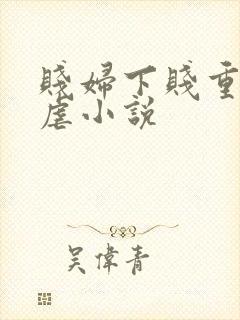 賤婦下賤重
虐小說
吳偉青